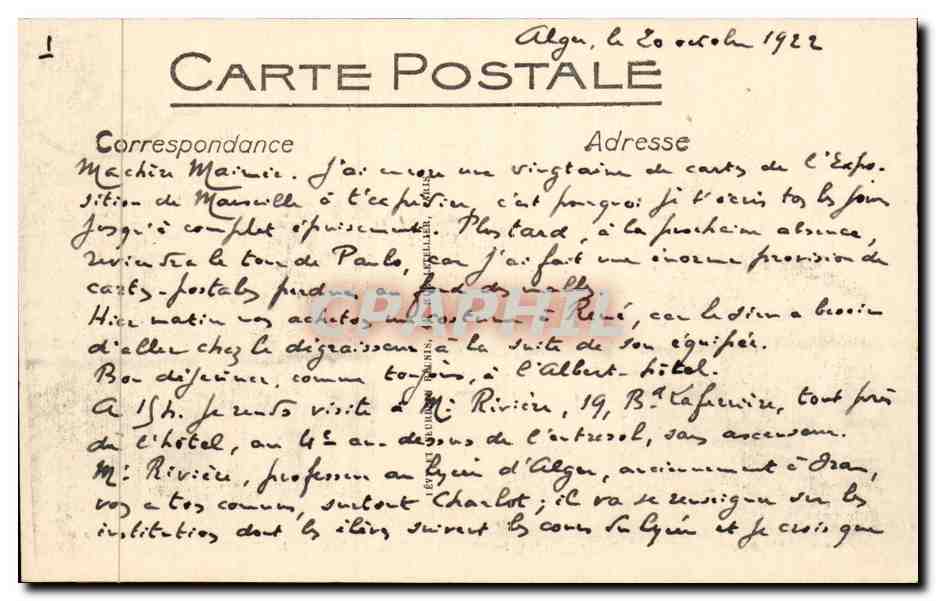 1
Alger, le 20 octobre 1922
CARTE POSTALE
Correspondance
Adresse
Ma chère Mainie. J'ai encore une vingtaine de cartes de l'Expo-
sition de Marseille à t'expédier, c'est pourquoi je t'écris tos les jours
jusqu'à complet épuisement. Plus tard, à la prochaine absence,
reviendra le tour de Paulo, car j'ai fait une énorme provision de
cartes-postales perdues au fond des malles.
Hier matin nos achetos un costume à René, car le sien a besoin
d'aller chez le dégraisseur à la suite de son équipée.
Bon déjeuner, comme toujours, à l'Albert-hôtel.
A 15h. je rends visite à Mr Rivière, 19, Bd Laferrière, tout près
de l'hôtel, au 4e au-dessus de l'entresol, sans ascenseur.
Mr Rivière, professeur au lycée d'Alger, anciennement à Oran,
vos a tos connus, surtout Charlot; il va se renseigner sur les
institutions dont les élèves suivent les cours du lycée et je crois que
LÉVY ET NEURDEIN RÉUNIS, LETELLIER, PARIS
CPAPHIL